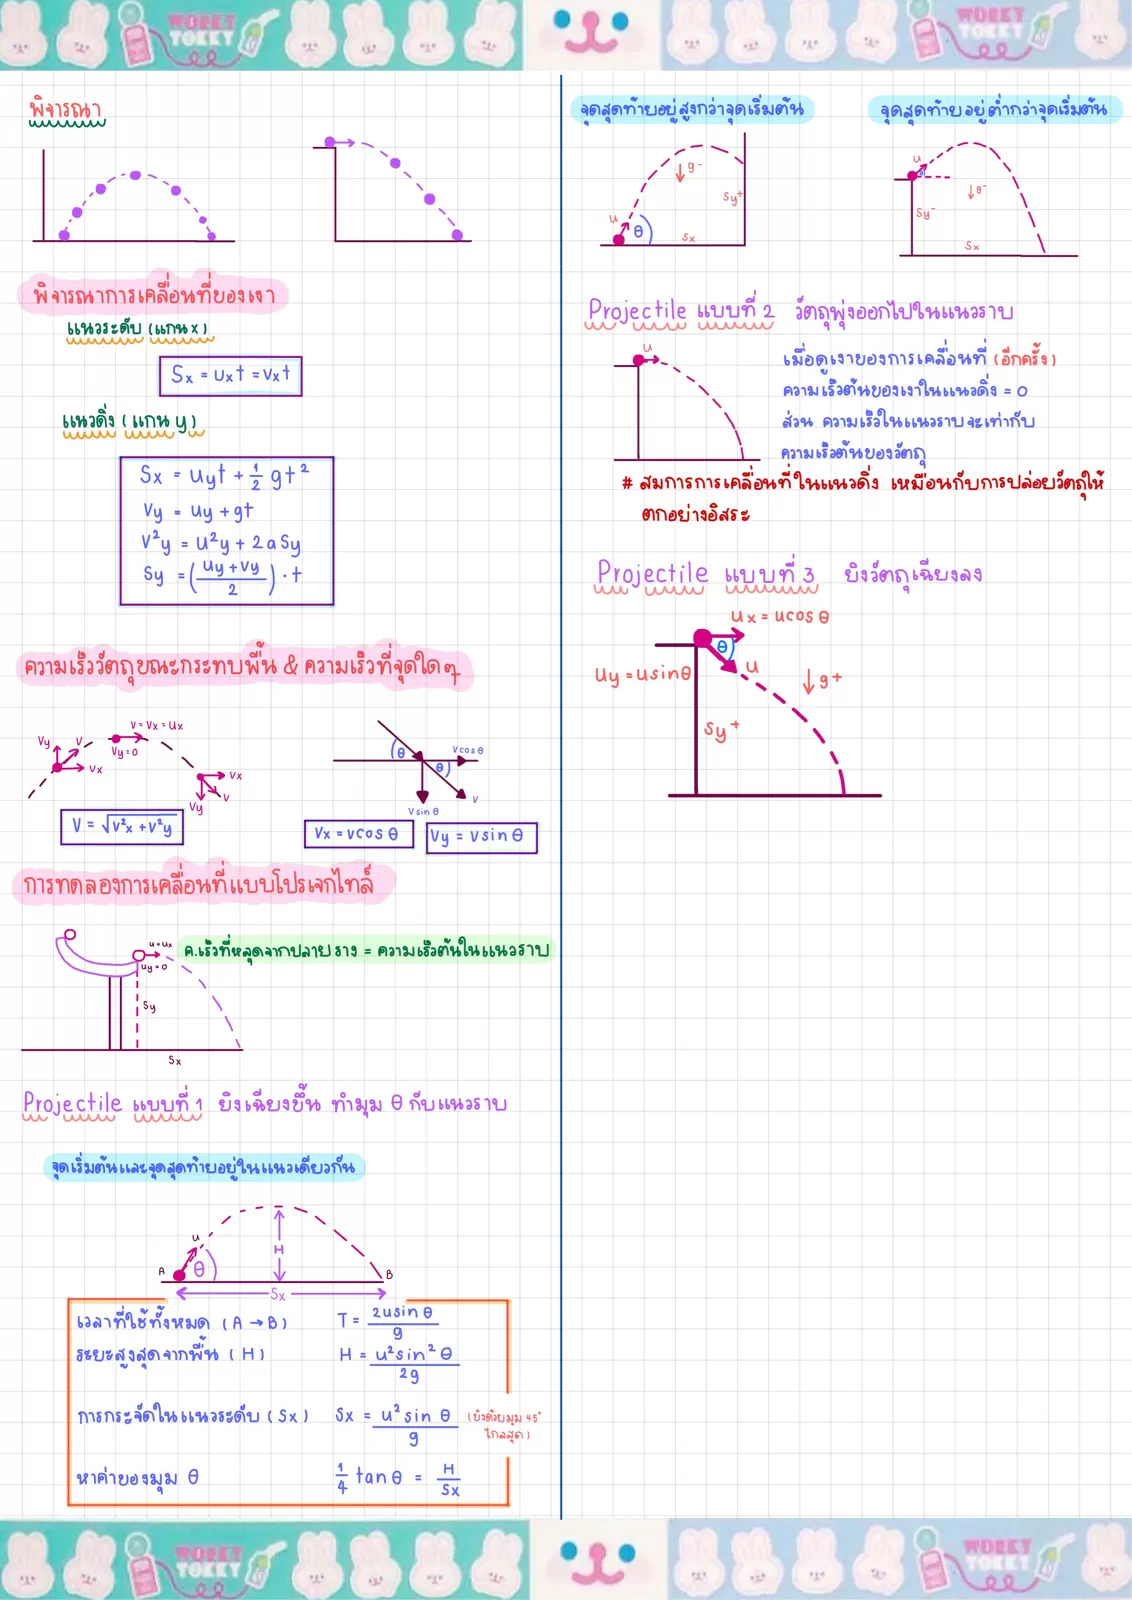 WORKY
TOKKY
WORKY
TOKKY
พิจารณา
พิจารณาการเคลื่อนที่ของเงา
แนวระดับ (แกน x)
Sx = uxt = vxt
แนวดิ่ง (แกน y)
Sx = uyt + 1/2 gt²
Vy = uy + gt
V²y = u²y + 2aSy
Sy = (uy + vy / 2) · t
ความเร็ววัตถุขณะกระทบพื้น & ความเร็วที่จุดใดๆ
V = Vx = Ux
Vy V
Vy = 0
Vx
Vx
V
Vy
V = √V²x + V²y
θ
Vcosθ
θ
V
Vsinθ
Vx = vcosθ
Vy = Vsinθ
การทดลองการเคลื่อนที่แบบโปรเจกไทล์
u = ux
uy = 0
ค.เร็วที่หลุดจากปลายราง = ความเร็วต้นในแนวราบ
Sy
Sx
Projectile แบบที่ 1 ยิงเฉียงขึ้น ทำมุม θ กับแนวราบ
จุดเริ่มต้นและจุดสุดท้ายอยู่ในแนวเดียวกัน
u
H
A θ B
Sx
เวลาที่ใช้ทั้งหมด (A → B) T = 2usinθ / g
ระยะสูงสุดจากพื้น (H) H = u²sin²θ / 2g
การกระจัดในแนวระดับ (Sx) Sx = u²sinθ / g (ยิงด้วยมุม 45°
ไกลสุด)
หาค่าของมุม θ 1/4 tanθ = H / Sx
จุดสุดท้ายอยู่สูงกว่าจุดเริ่มต้น
g-
Sy+
u
θ
Sx
จุดสุดท้ายอยู่ต่ำกว่าจุดเริ่มต้น
u
θ
g-
Sy-
Sx
Projectile แบบที่ 2 วัตถุพุ่งออกไปในแนวราบ
u
เมื่อดูเงาของการเคลื่อนที่ (อีกครั้ง)
ความเร็วต้นของเงาในแนวดิ่ง = 0
ส่วน ความเร็วในแนวราบจะเท่ากับ
ความเร็วต้นของวัตถุ
# สมการการเคลื่อนที่ในแนวดิ่ง เหมือนกับการปล่อยวัตถุให้
ตกอย่างอิสระ
Projectile แบบที่ 3 ยิงวัตถุเฉียงลง
ux = ucosθ
θ
uy = usinθ
u
g+
Sy+
WORKY
TOKKY
WORKY
TOKKY